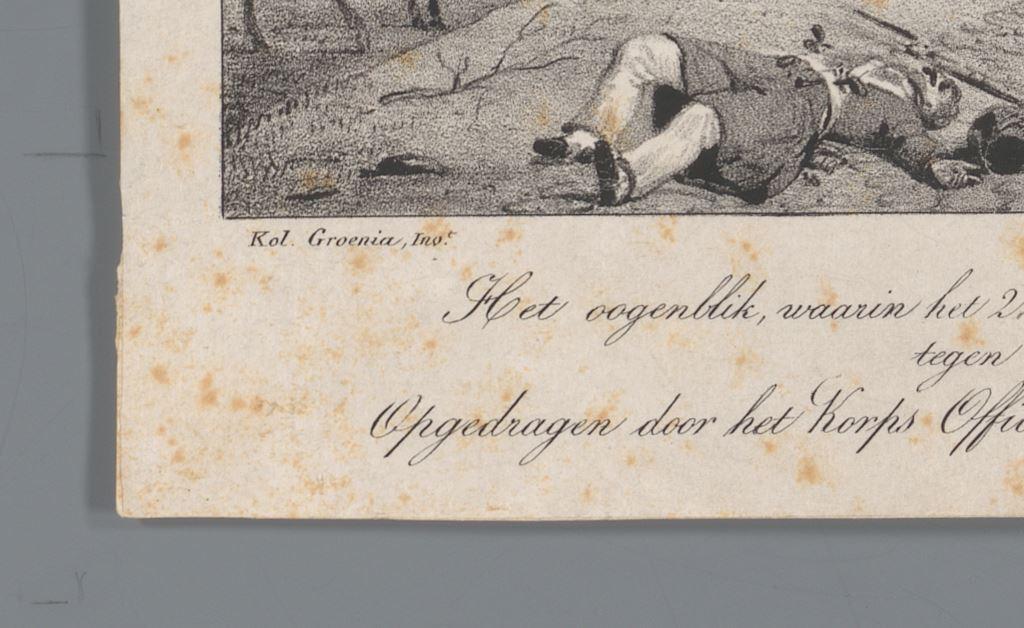 Kol. Groenia, Invt.
Het oogenblik, waarin het 2
tegen
Opgedragen door het Korps Offi